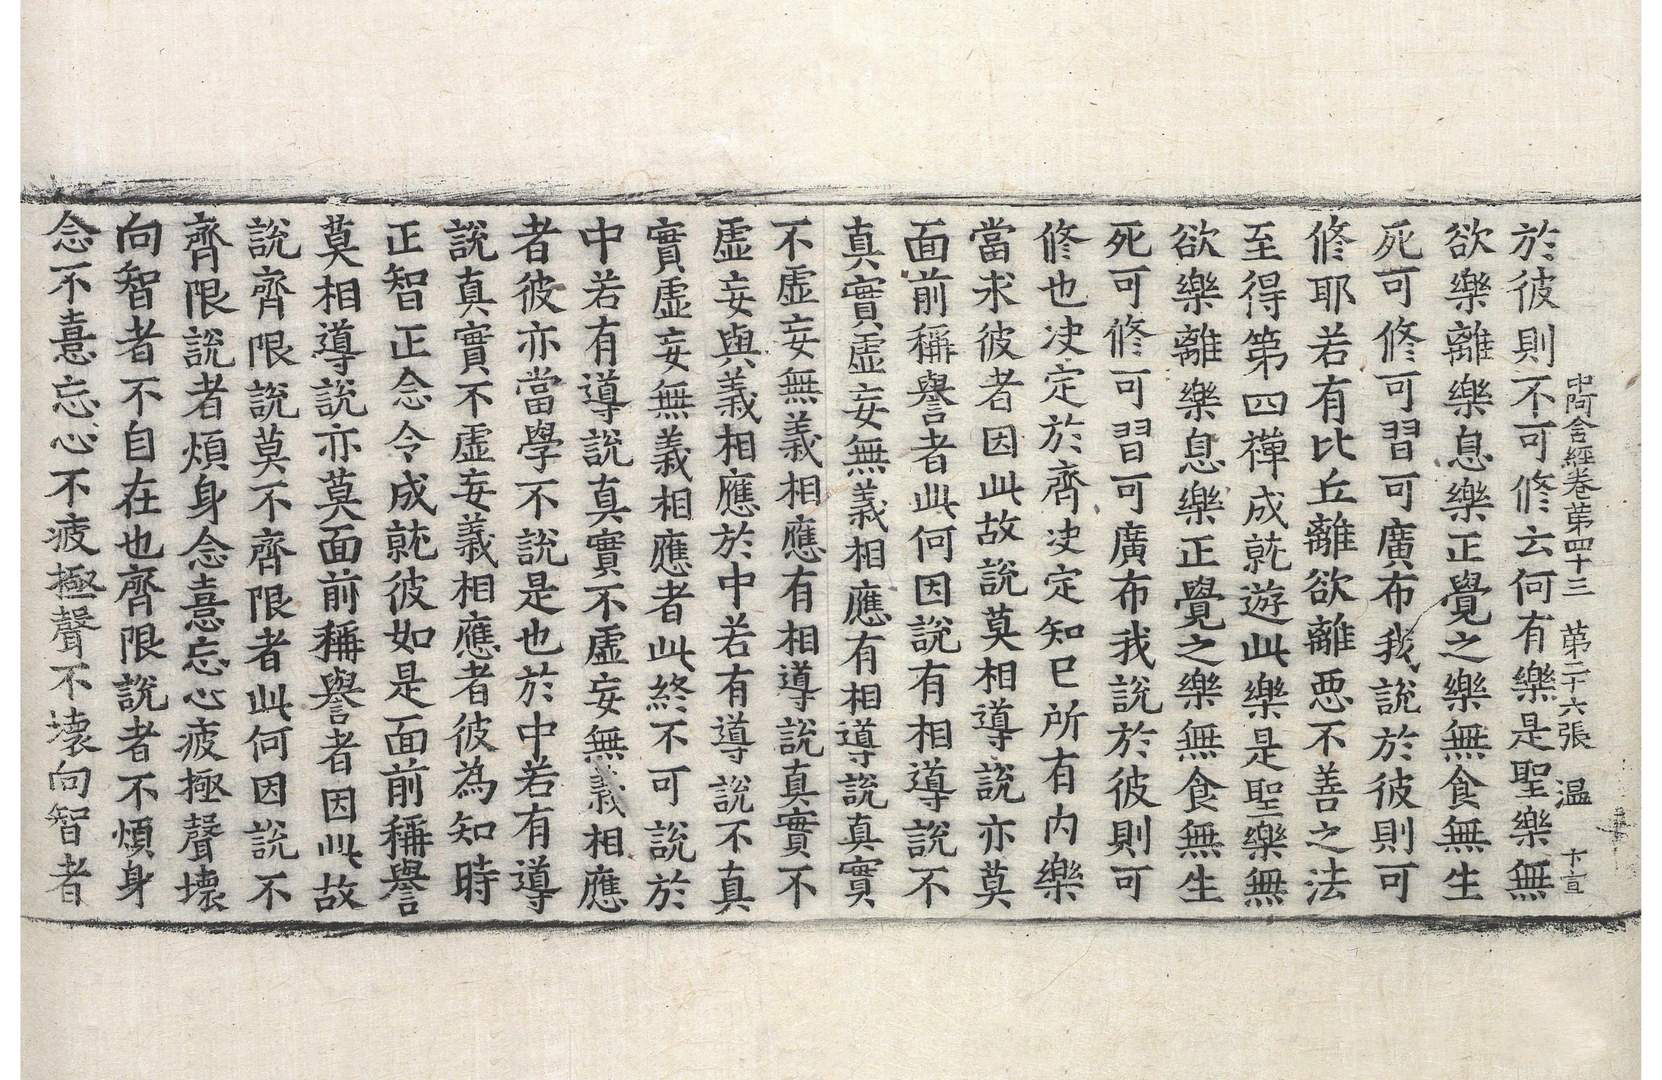 中阿含經卷第四十三 第二十六張 温 卞宣
於彼則不可修云何有樂是聖樂無
欲樂離樂息樂正覺之樂無食無生
死可修可習可廣布我說於彼則可
修耶若有比丘離欲離惡不善之法
至得第四禪成就遊此樂是聖樂無
欲樂離樂息樂正覺之樂無食無生
死可修可習可廣布我說於彼則可
修也决定於齊决定知已所有內樂
當求彼者因此故說莫相導說亦莫
面前稱譽者此何因說有相導說不
真實虛妄無義相應有相導說真實
不虛妄無義相應有相導說真實不
虛妄與義相應於中若有導說不真
實虛妄無義相應者此終不可說於
中若有導說真實不虛妄無義相應
者彼亦當學不說是也於中若有導
說真實不虛妄義相應者彼為知時
正智正念令成就彼如是面前稱譽
莫相導說亦莫面前稱譽者因此故
說齊限說莫不齊限者此何因說不
齊限說者煩身念憙忘心疲極聲壞
向智者不自在也齊限說者不煩身
念不憙忘心不疲極聲不壞向智者